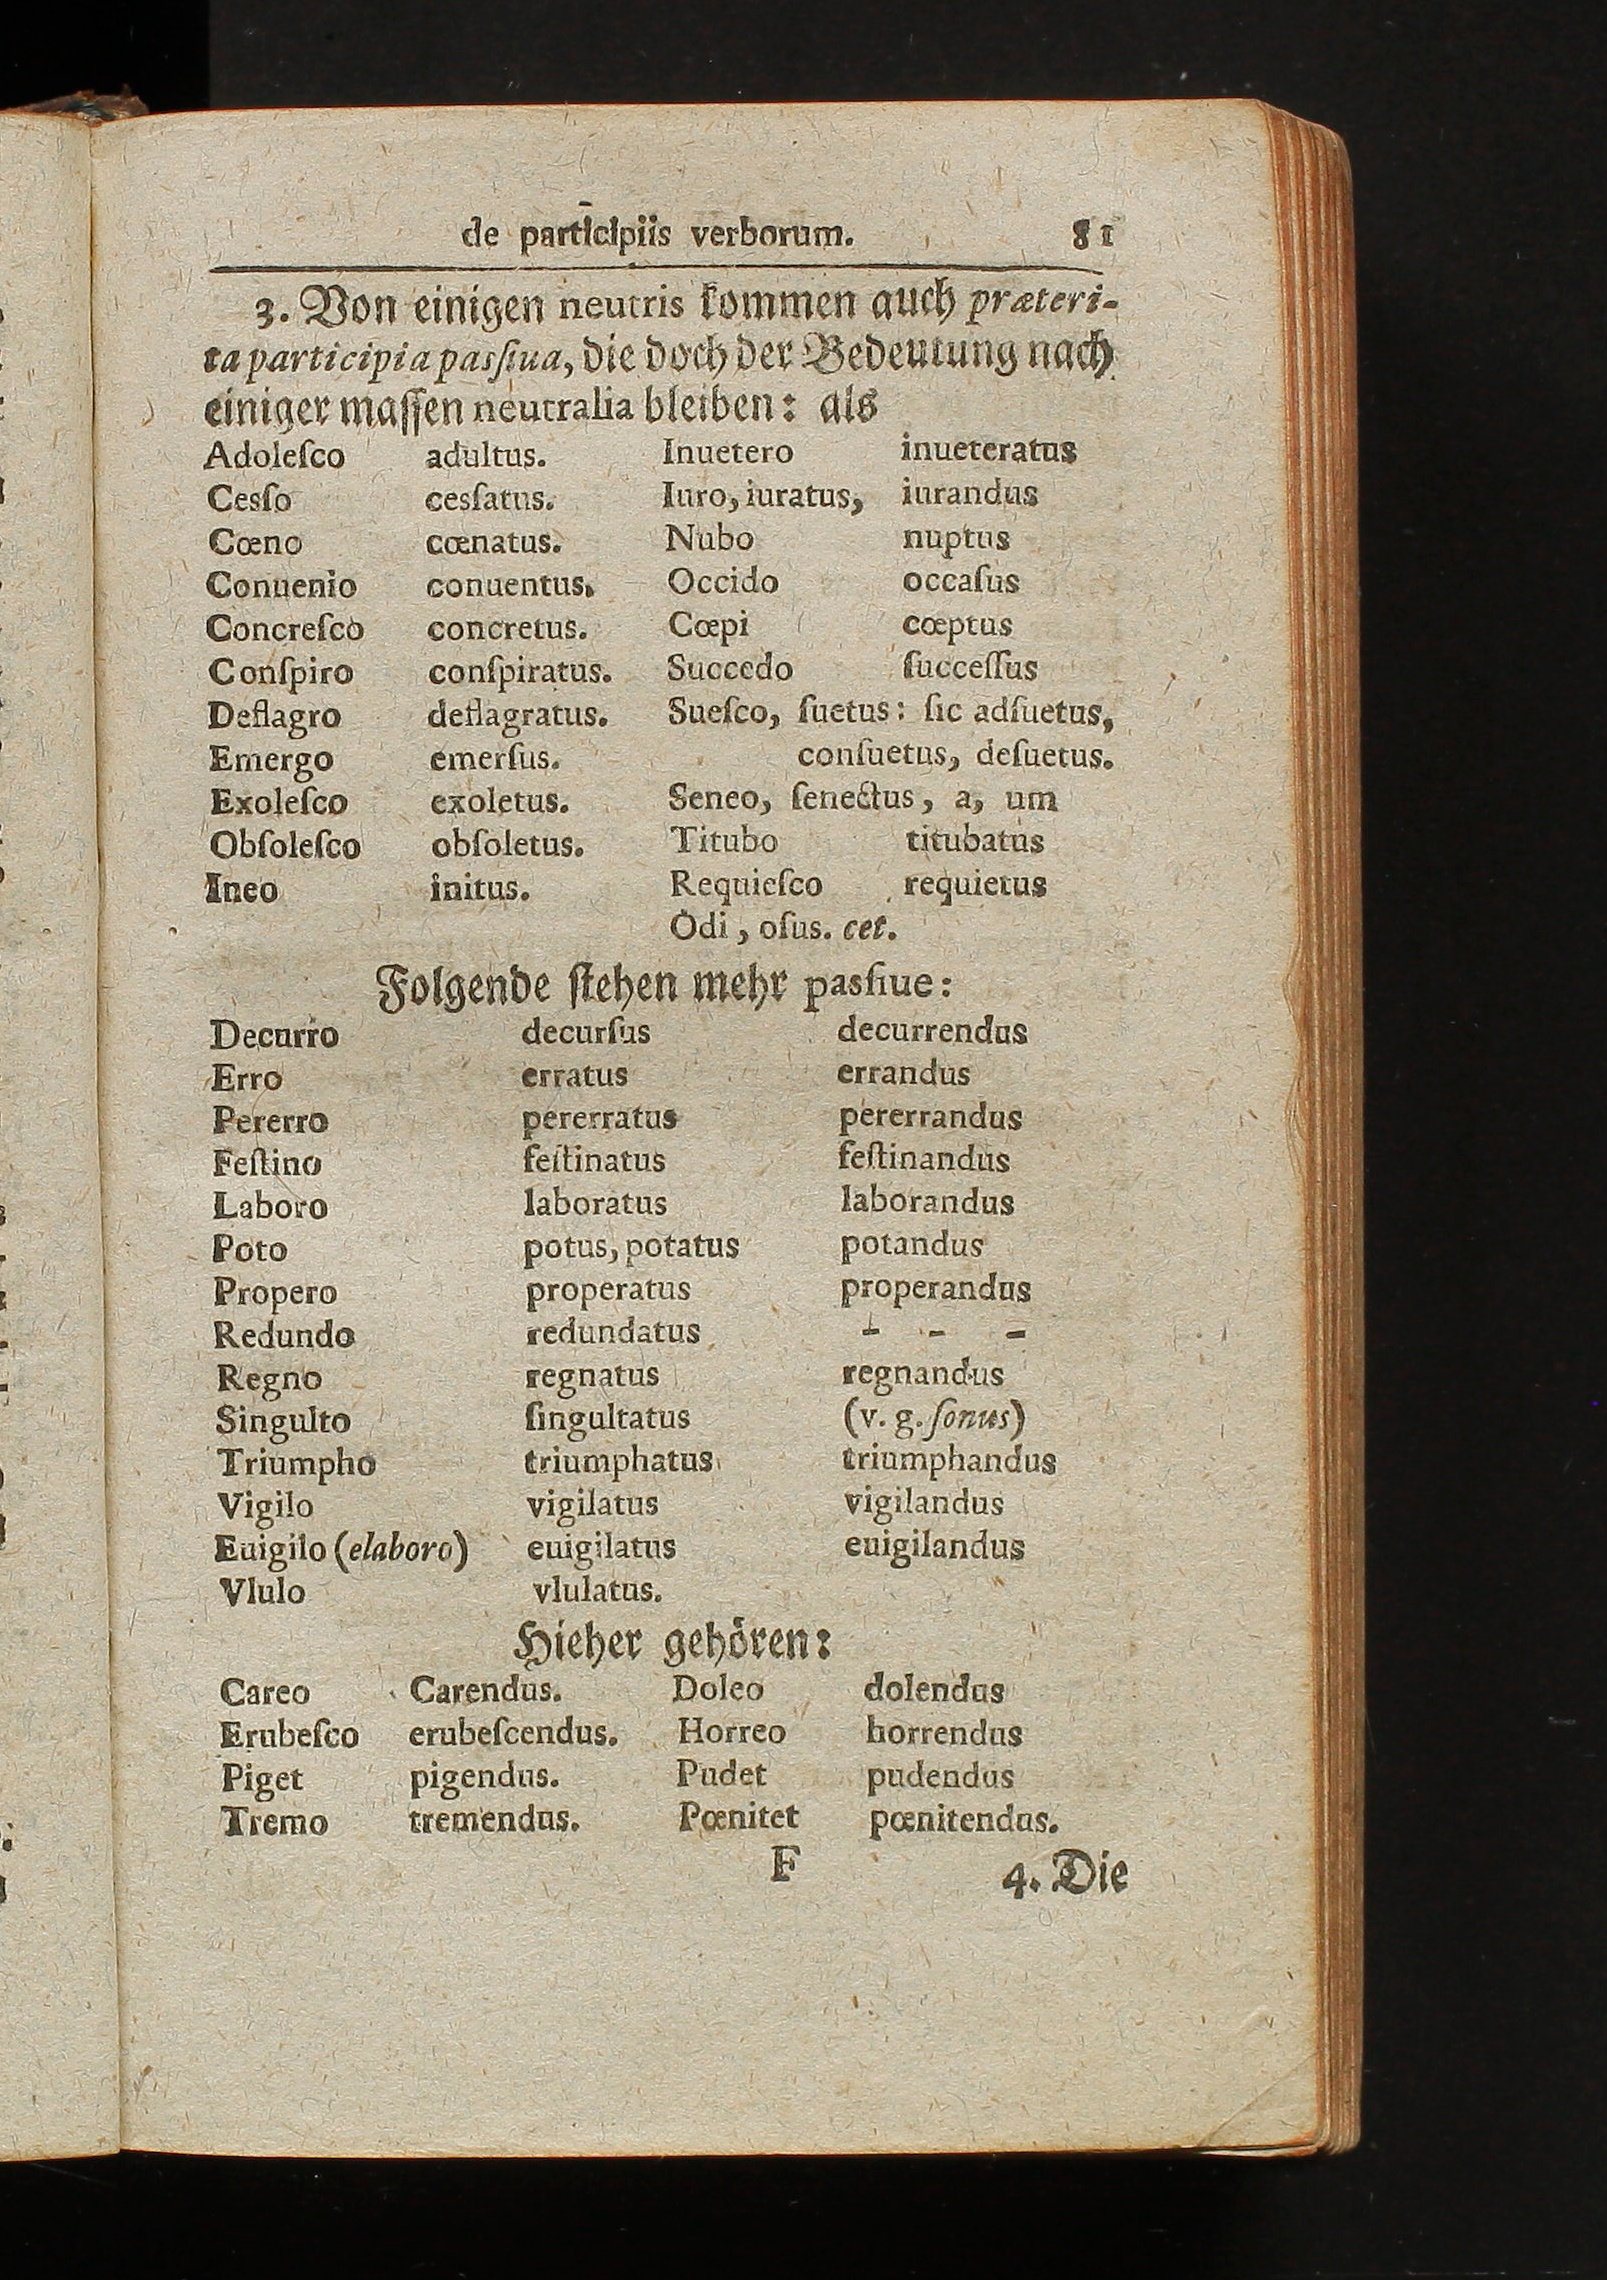 de participiis verborum. 81
3. Von einigen neutris kommen auch præteri-
ta participia pasſiua, die doch der Bedeutung nach
einiger maſſen neutralia bleiben: als
Adoleſco adultus. Inuetero inueteratus
Cesſo cesſatus. Iuro, iuratus, iurandus
Cœno cœnatus. Nubo nuptus
Conuenio conuentus. Occido occaſus
Concreſco concretus. Cœpi cœptus
Conſpiro conſpiratus. Succedo ſucceſſus
Deflagro deflagratus. Sueſco, ſuetus: ſic adſuetus,
Emergo emerſus. conſuetus, deſuetus.
Exoleſco exoletus. Seneo, ſenectus, a, um
Obſoleſco obſoletus. Titubo titubatus
Ineo initus. Requieſco requietus
Odi, oſus. cet.
Folgende ſtehen mehr pasſiue:
Decurro decurſus decurrendus
Erro erratus errandus
Pererro pererratus pererrandus
Feſtino feſtinatus feſtinandus
Laboro laboratus laborandus
Poto potus, potatus potandus
Propero properatus properandus
Redundo redundatus - - -
Regno regnatus regnandus
Singulto ſingultatus (v. g. ſonus)
Triumpho triumphatus triumphandus
Vigilo vigilatus vigilandus
Euigilo (elaboro) euigilatus euigilandus
Vlulo vlulatus.
Hieher gehören:
Careo Carendus. Doleo dolendus
Erubeſco erubeſcendus. Horreo horrendus
Piget pigendus. Pudet pudendus
Tremo tremendus. Pœnitet pœnitendus.
F 4. Die